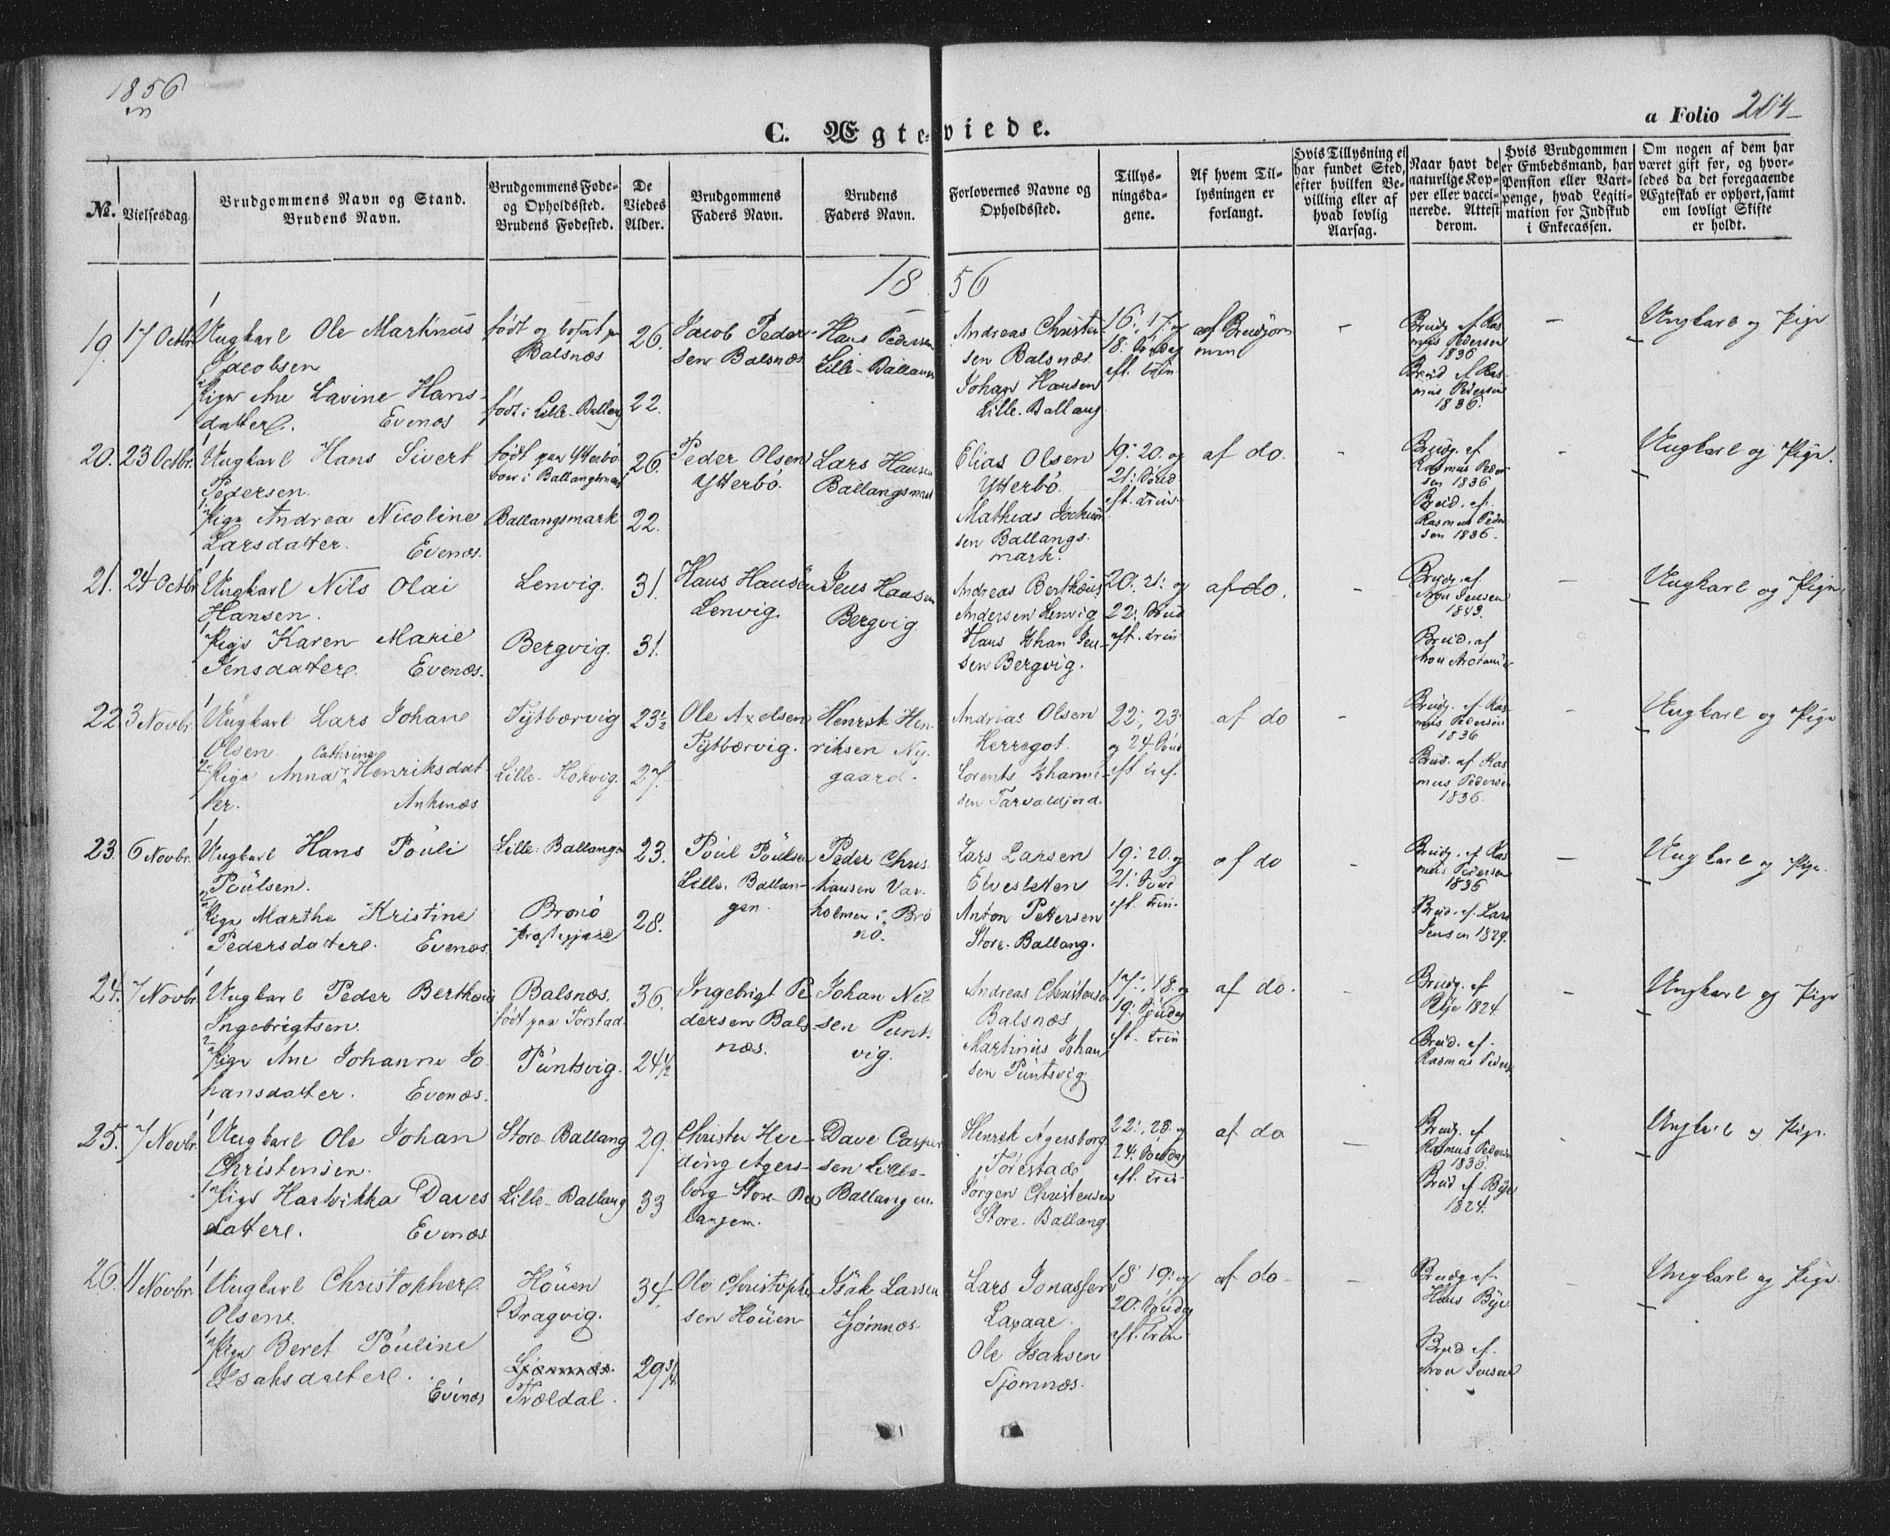 1856
C. Ægteviede.
a Folio 204
№.
Vielsesdag.
Brudgommens Navn og Stand.
Brudens Navn.
Brudgommens Føde-
og Opholdssted.
Brudens Fødested.
De
Viedes
Alder.
Brudgommens
Faders Navn.
Brudens
Faders Navn.
Forlovernes Navne og
Opholdssted.
Tillys-
ningsda-
gene.
Af hvem Til-
lysningen er
forlangt.
Hvis Tillysning ei
har fundet Sted,
efter hvilken Be-
villing eller af
hvad lovlig
Aarsag.
Naar havt de
naturlige Kop-
per eller vacci-
nerede. Attest
derom.
Hvis Brudgommen
er Embedsmand, har
Pension eller Vart-
penge, hvad Legiti-
mation for Indskud
i Enkecassen.
Om nogen af dem har
været gift før, og hvor-
ledes da det foregaaende
Ægteskab er ophørt, samt
om lovligt Skifte
er holdt.
1856
19. 17 Octbr.
Ungkarl Ole Martinus
Jacobsen
Pige Ane Lavine Hans-
datter. Evenæs
født og bosat paa
Balsnæs
født i Lille-Ballang
26.
22.
Jacob Peder-
sen Balsnæs
Hans Pedersen
Lille-Ballangen
Andreas Christen
sen Balsnæs
Johan Hansen
Lille-Ballang
16: 17: og
18. Søndag
eft. trin
af Brudgom
men
–
Brudg. af Ras
mus Pedersen
1836
Brud af Ras
mus Pedersen
1836.
–
Ungkarl og Pige
20. 23 Octbr.
Ungkarl Hans Sivert
Pedersen.
Pige Andrea Nicoline
Larsdatter. Evenæs.
født paa Ytterbø
boer i Ballangsmark
Ballangsmark
26
22.
Peder Olsen
Ytterbø.
Lars Hansen
Ballangsmark
Elias Olsen
Ytterbø.
Mathias Jochum
sen Ballangs
mark.
19: 20. og
21: Sønd
eft. trin.
af do.
–
Brudg. af
Rasmus Peder
sen 1836
Brud. af.
Rasmus Peder
sen 1836.
–
Ungkarl og Pige.
21. 24 Octbr
Ungkarl Nils Olai
Hansen.
Pige Karen Marie
Jensdatter. Evenæs.
Lenvig.
Bergvig.
31.
31.
Hans Hansen
Lenvig.
Jens Hansen
Bergvig
Andreas Berthæus
Andersen Lenvig
Hans Johan Jen-
sen Bergvig.
20: 21: og
22: Sønd
eft. trin
af do.
–
Brudg. af
Aron Jensen
1843.
Brud. af
–
Ungkarl og Pige
22. 3 Novbr.
Ungkarl Lars Johan
Olsen.
Pige Anna Cathrina Henriksdat
ter. Ankenæs
Tytbærvig
Lille-Hokvig.
23½
27.
Ole Axelsen
Tytbærvig.
Henrik Hen-
riksen Ny-
gaard-
Andreas Olsen
Herregot.
Lorents Johanne
sen Tarvaldjord.
22: 23
og 24 Sønd
eft tref.
af do
–
Brudg. af Ras
mus Pedersen
1836
Brud. af Ras
mus Pedersen
1836.
Ungkarl og Pige
23. 6 Novbr.
Ungkarl Hans Pouli
Poulsen.
Pige Marthe Kristine
Pedersdatter. Evenæs.
Lille-Ballangen
Brønø
Præstegjæld
23.
28.
Poul Poulsen
Lille-Ballan-
gen.
Peder Chris
tiansen Var
holmen i Brø
nø.
Lars Larsen
Elvesletten
Anton Pettersen
Store-Ballang.
19: 20. og
21. Sønd
eft. trin.
af do
–
Brudg. af Ras
mus Pedersen
1836
Brud. af. Lars
Jensen 1829.
–
Ungkarl og Pige.
24. 7 Novbr.
Ungkarl Peder Berthæus
Ingebrigtsen.
Pige Ane Johanne Jo
hansdatter. Evenæs.
Balsnæs.
født paa Tørstad.
Puntsvig.
36.
24½
Ingebrigt Pe
dersen Bals
næs.
Johan Nil
sen Punts
vig.
Andreas Christensen
Balsnæs
Martinus Johan
sen Puntsvig
17: 18. og
19: Søndag
eft. trin
af do.
–
Brudg. af
Bye 1824
Brud. af.
Rasmus Peders
–
Ungkarl og Pige
25. 7 Novbr.
Ungkarl Ole Johan
Christensen.
Pige Hartvikka Daves
datter. Evenæs
Store-Ballang
Lille-Ballang
29.
33
Christen Hve-
ding Agers-
borg Store-Bal
langen.
Dave Casper
sen Lille-
Ballangen
Henrik Agersborg
Tørestad
Jørgen Christensen
Store-Ballang.
22: 23: og
24. Søndag
eft. trin
af do
–
Brudg. af
Rasmus Peders
1836.
Brud af Bye
1824.
–
Ungkarl og Pige.
26. 11 Novbr.
Ungkarl Christopher
Olsen.
Pige Beret Pouline
Isaksdatter.
Evenæs
Houen
Dragvig.
Trældal.
34.
29¾
Ole Christophe
sen Houen
Isak Larsen
Tjømnæs
Lars Jonassen
Laxaae.
Ole Isaksen
Tjomnæs.
18: 19: og
20. Søndag
eft. trin
af do-
–
Brudg. af
Hans Bye
Brud af.
Aron Jensen
–
Ungkarl og Pige.